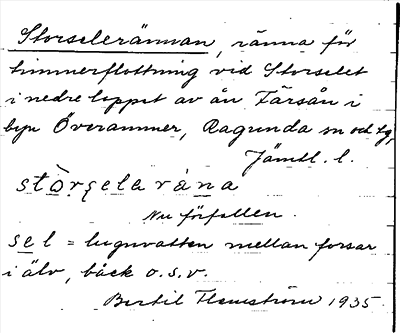 Storselerännan, ränna för
timmerflottning vid Storselet
i nedre loppet av ån Färsån i
byn Överammer, Ragunda sn och tg,
Jämtl. l.
stòrṣela ràna
Nu förfallen.
sel = lugnvatten mellan forsar
i älv, bäck o.s.v.
Bertil Flemström 1935